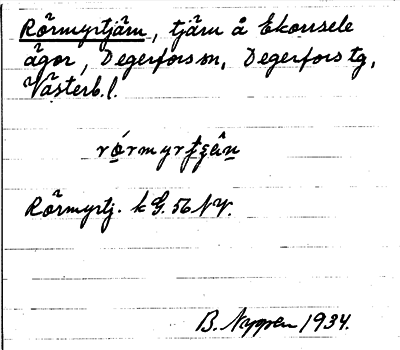 Rörmyrtjärn, tjärn å Ekorrsele
ägor, Degerfors sn, Degerfors tg,
Västerb. l.
Rörmyrtj. k G. 56 NV.
B. Nygren 1934.